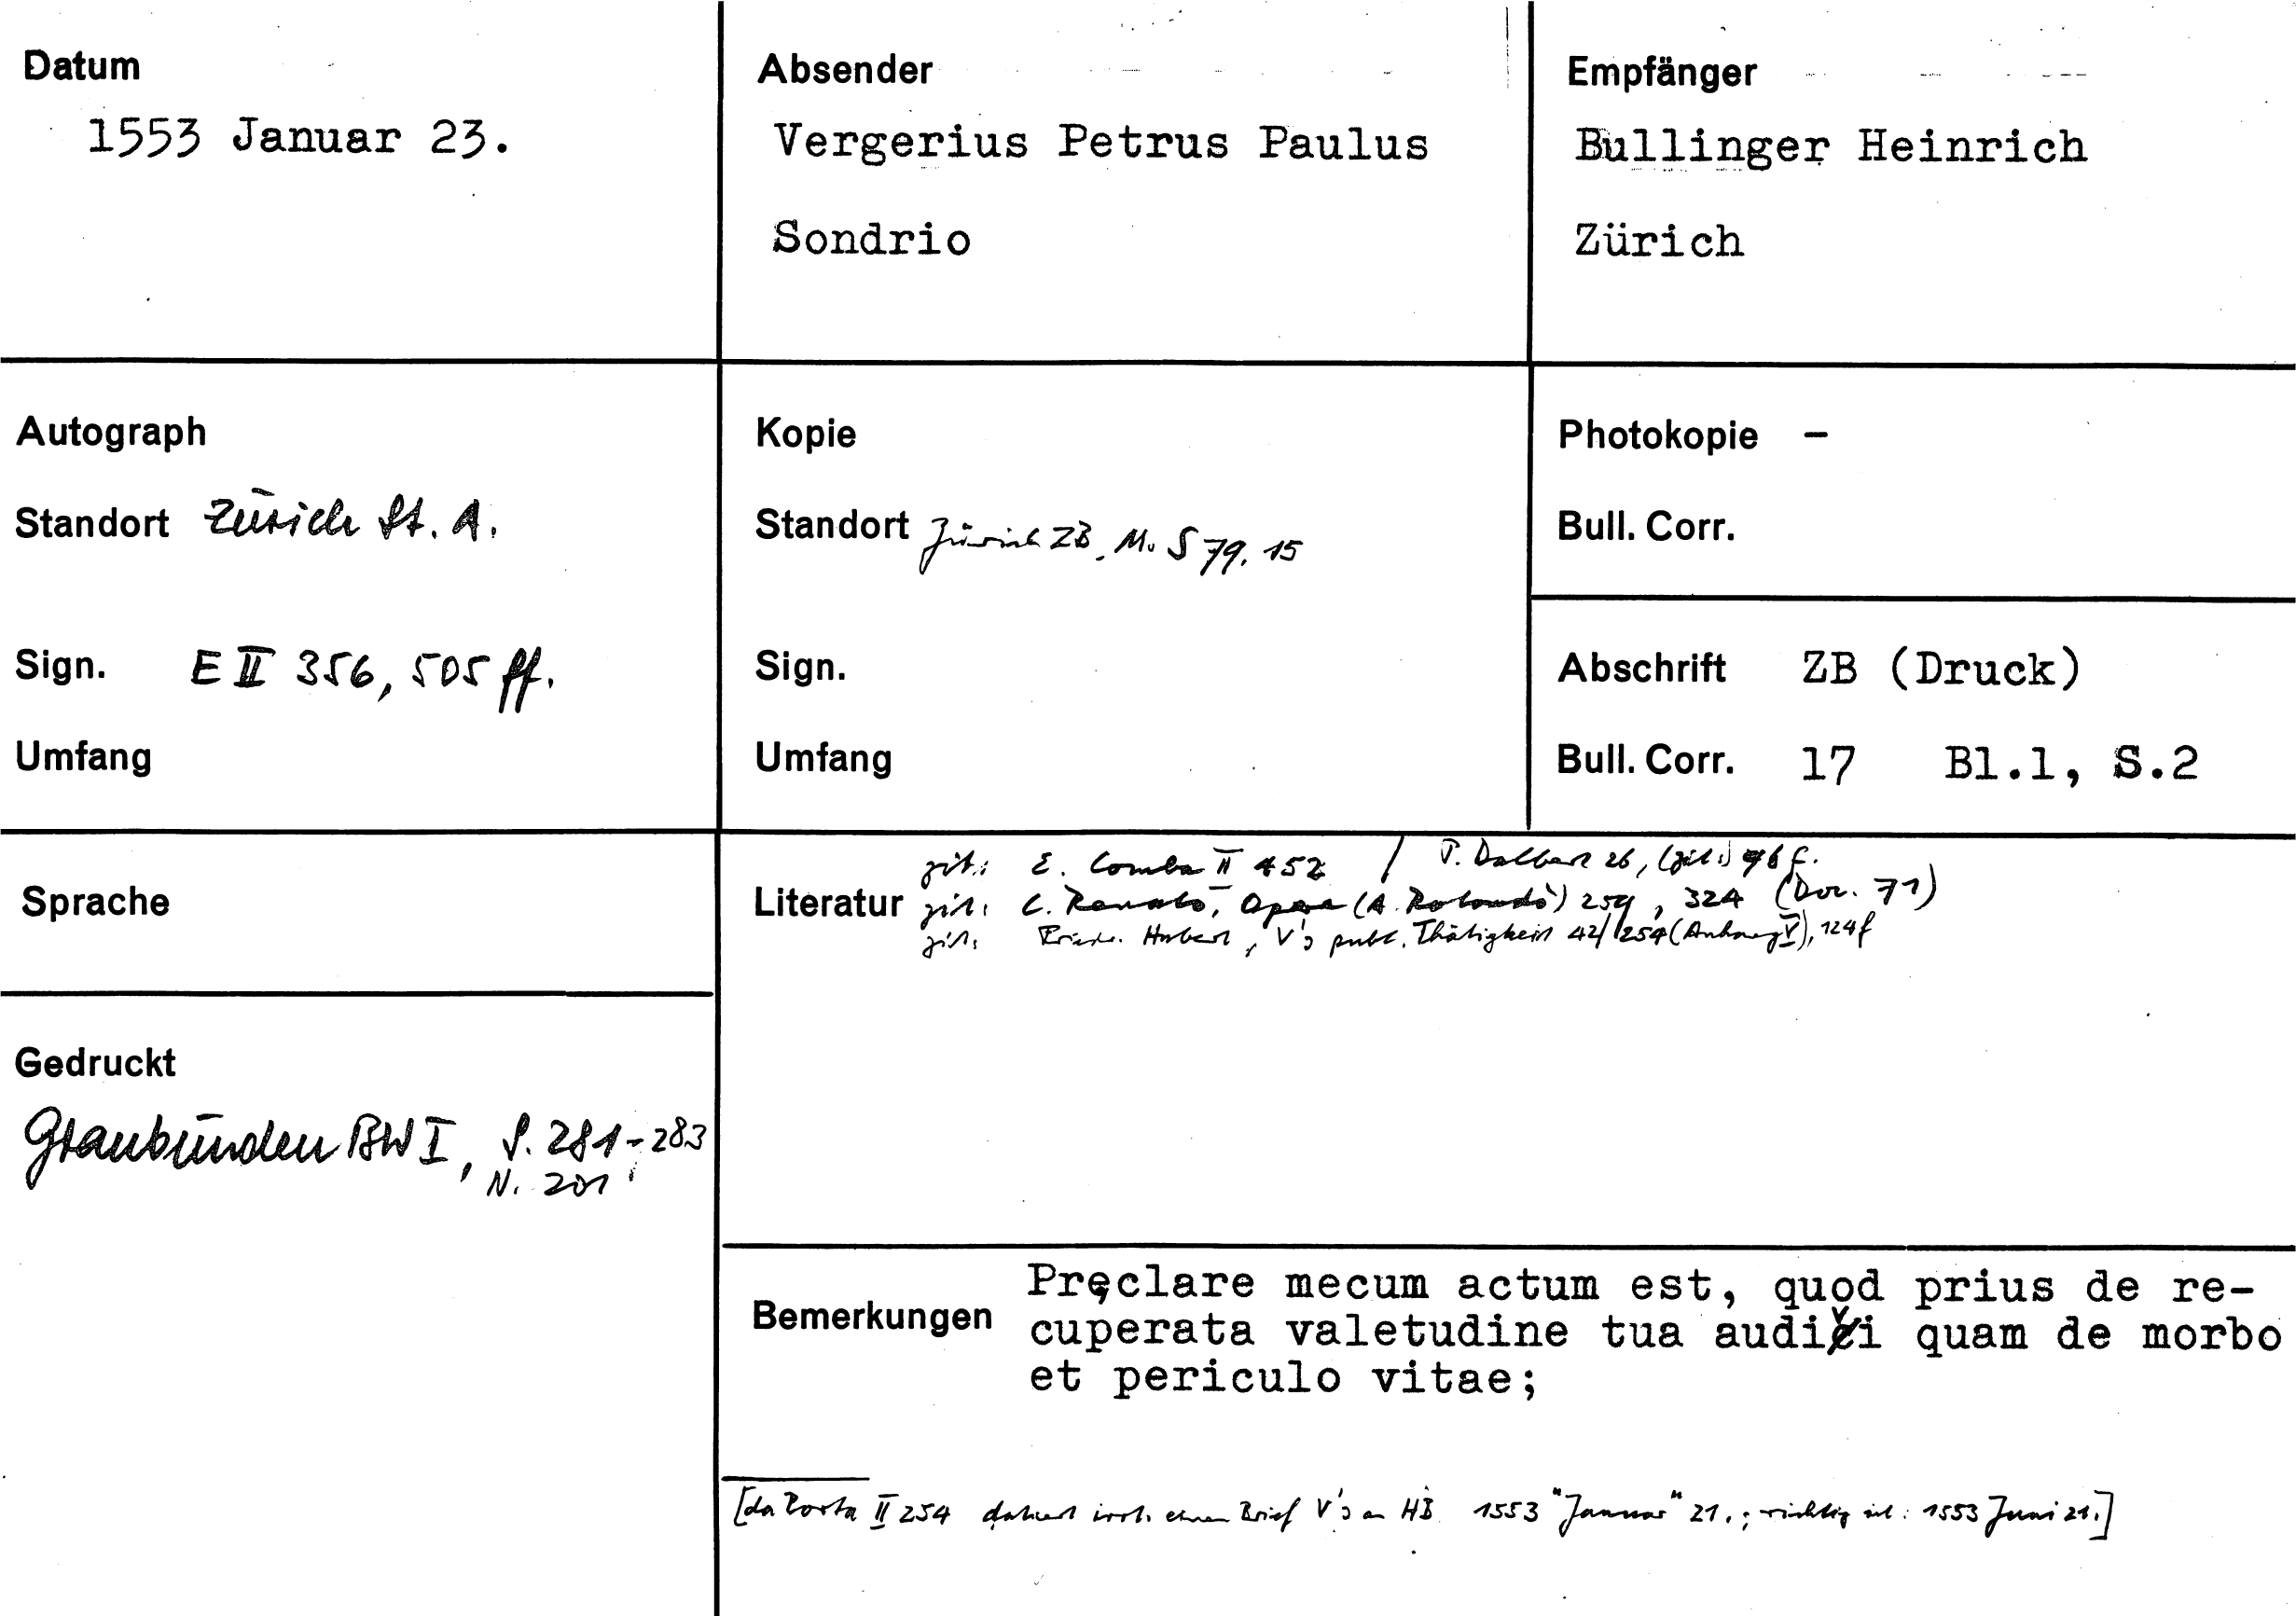 Datum
1553 Januar 23.
Absender
Vergerius Petrus Paulus
Sondrio
Empfänger
Bullinger Heinrich
Zürich
Autograph
Standort Zürich St. A.
Sign. E II 356, 505 ff.
Umfang
Kopie
Standort Zürich ZB, Ms S 79, 15
Sign.
Umfang
Photokopie –
Bull. Corr.
Abschrift ZB (Druck)
Bull. Corr. 17 Bl.1, S.2
Sprache
Gedruckt
Graubünden BW I, S. 281-283
N. 201
zit.: E. Comba II 452 / P. Dalbert 26, (zit.:) 96 f.
Literatur zit.: C. Renato, Opere (A. Rotondò) 259, 324 (Doc. 71)
zit.: Friedr. Hubert, V's publ. Thätigkeit 42/254 (Anhang V), 124f
Bemerkungen
Pręclare mecum actum est, quod prius de re-
cuperata valetudine tua audivi quam de morbo
et periculo vitae;
[da Porta II 254 datiert irrt. einen Brief V's an HB 1553 "Januar" 21.; richtig ist: 1553 Juni 21.]